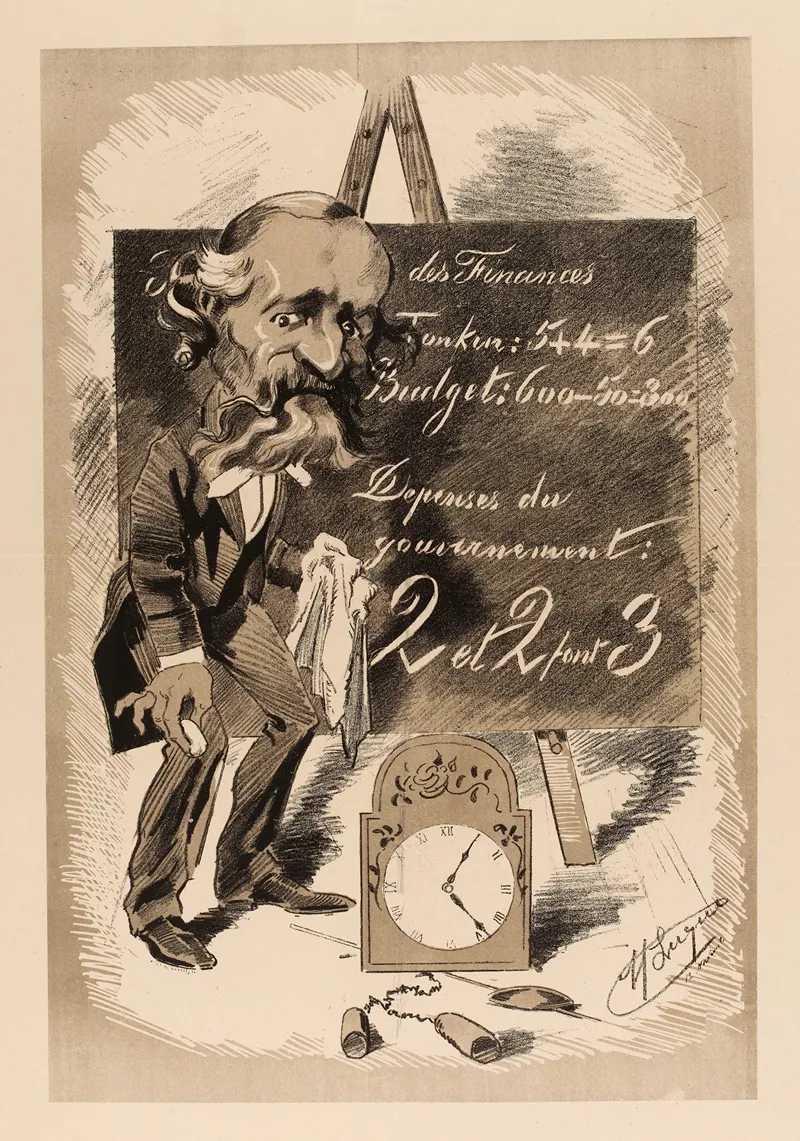 des Finances
Tonkin: 5+4=6
Budget: 600-50=300
Dépenses du
gouvernement:
2 et 2 font 3
XII
XI
II
III
IX
V
VI
VII
VIII